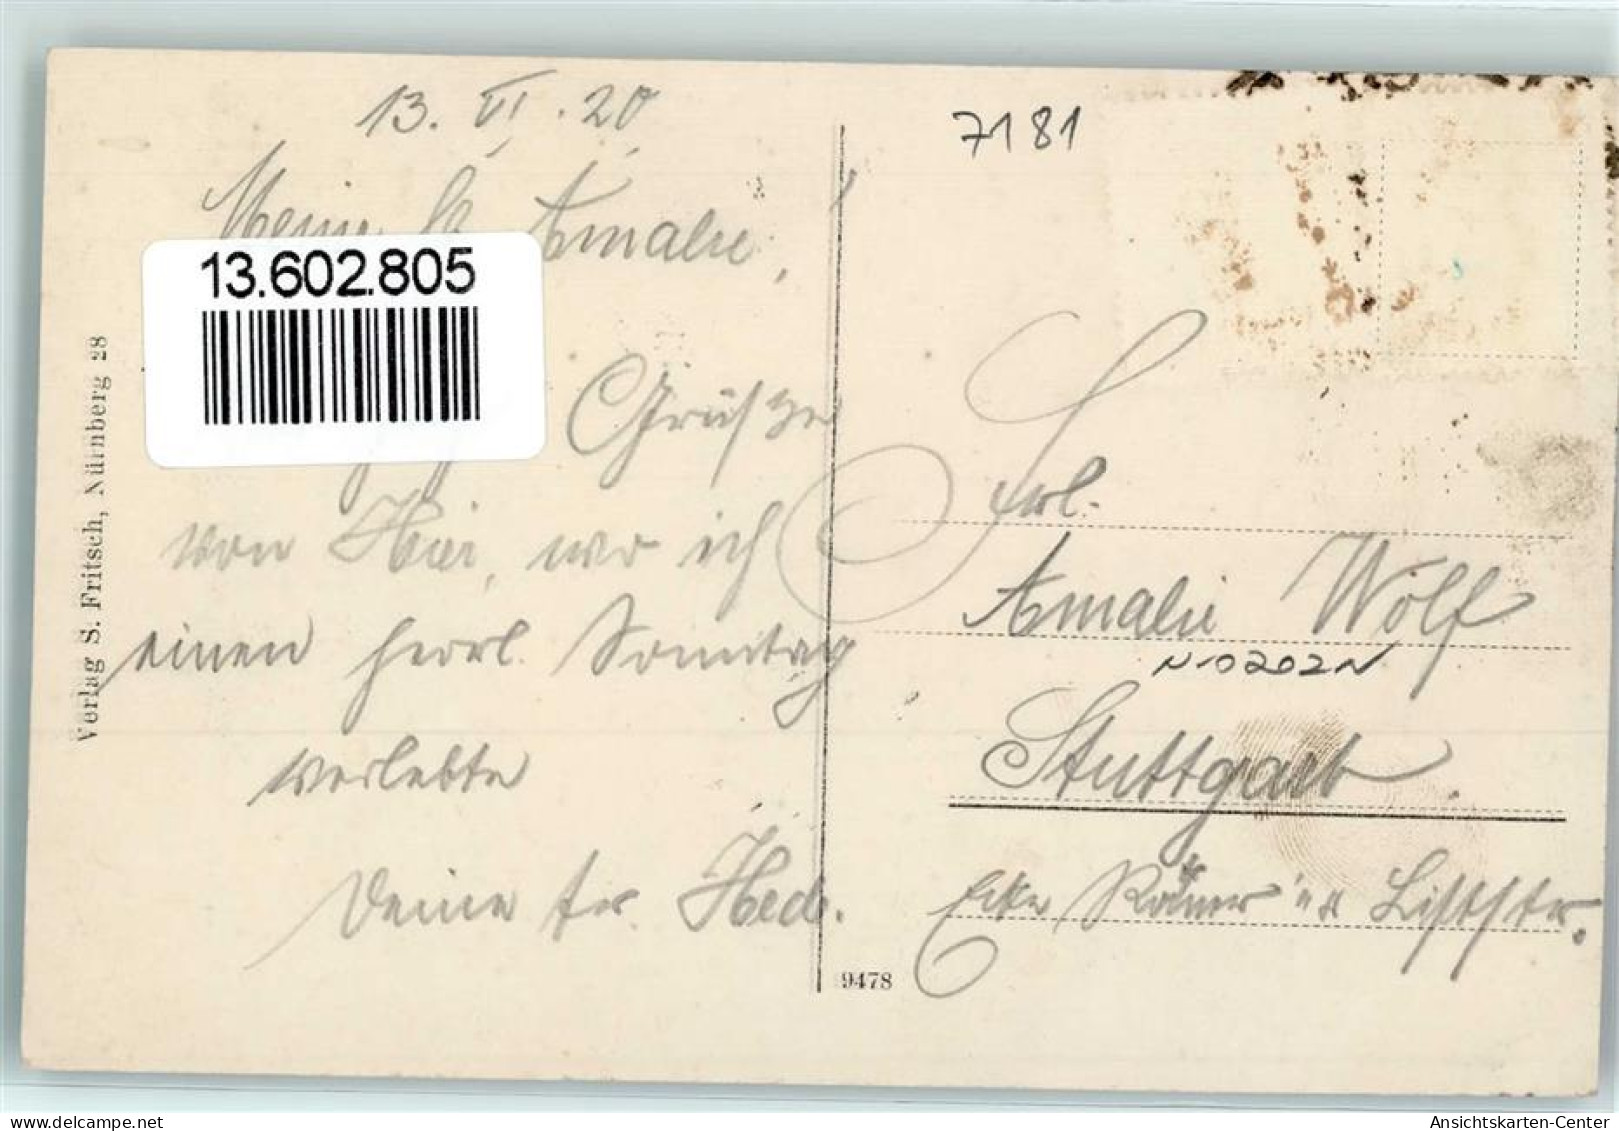 13. VI. 20
Meine lb. Amalie,
13.602.805
Grüße
von Hier, wo ich
einen herrl. Sonntag
verlebte
Deine tr. Hed.
Verlag S. Fritsch, Nürnberg 28
9478
7181
Frl.
Amalie Wolf
N-0202N
Stuttgart.
Ecke Römer u. Liststr.
Ansichtskarten-Center